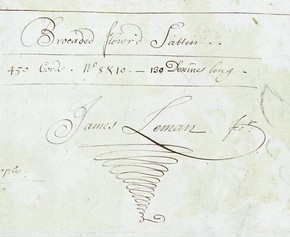 Brocaded flowr'd Sattin
450 Cords. No 8 & 10. — 130 Dezines long.
James Leman fect.